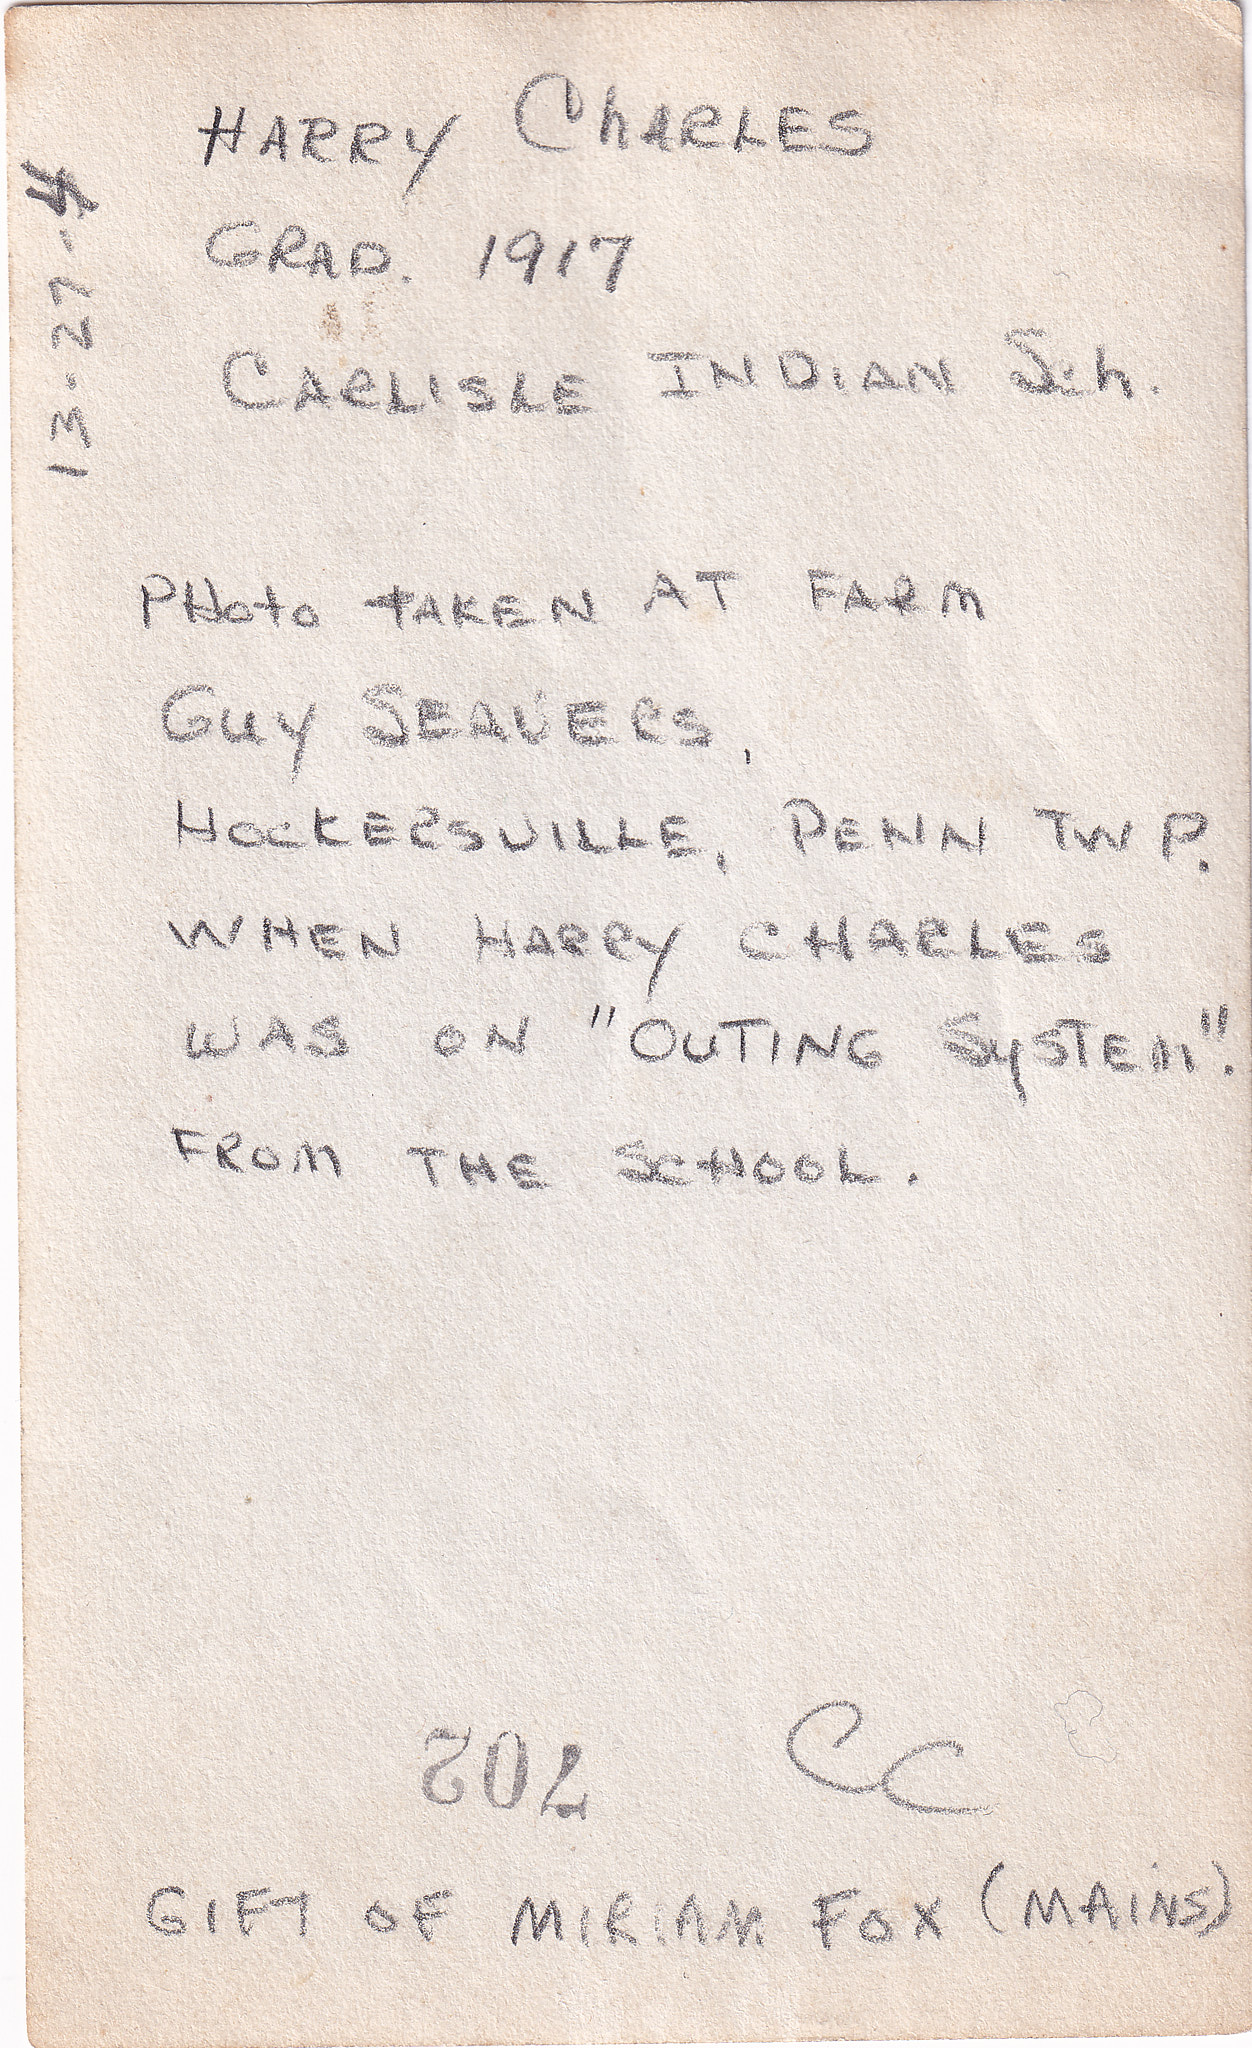 HARRY CHARLES
GRAD. 1917
CARLISLE INDIAN Sch.
13-27-4
PHOTO TAKEN AT FARM
GUY SEAVERS,
HOCKERSVILLE, PENN TWP.
WHEN HARRY CHARLES
WAS ON "OUTING SYSTEM".
FROM THE SCHOOL.
702
CC
GIFT OF MIRIAM FOX (MAINS)